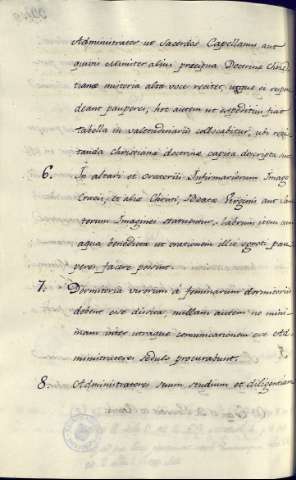 Administrator ut Sacerdos Capellanus aut
quivis Minister alius precipua Doctrinæ Christi
anæ misteria alta voce recitet, utque ei respon
deant pauperes, hoc autem ut expeditius fiat
tabella in valetudinariis collocabitur, ubi reci
tanda christianæ doctrinæ capita descripta sint
6. In altari et Oratoriis Infirmariorum Imago
Crucis, et aliæ Christi, Beatæ Virginis aut Sanc
torum Imagines statuentur, labrum item cum
aqua benedicta ut orationem illic egroti pau
peres facere possint.
7. Dormitoria virorum à feminarum dormitoriis
debent esse divisa, nullam autem ne mini
mam inter utraque comunicationem esse Ad
ministratores sedulo procurabunt.
8. Administratores suum studium et diligentiam